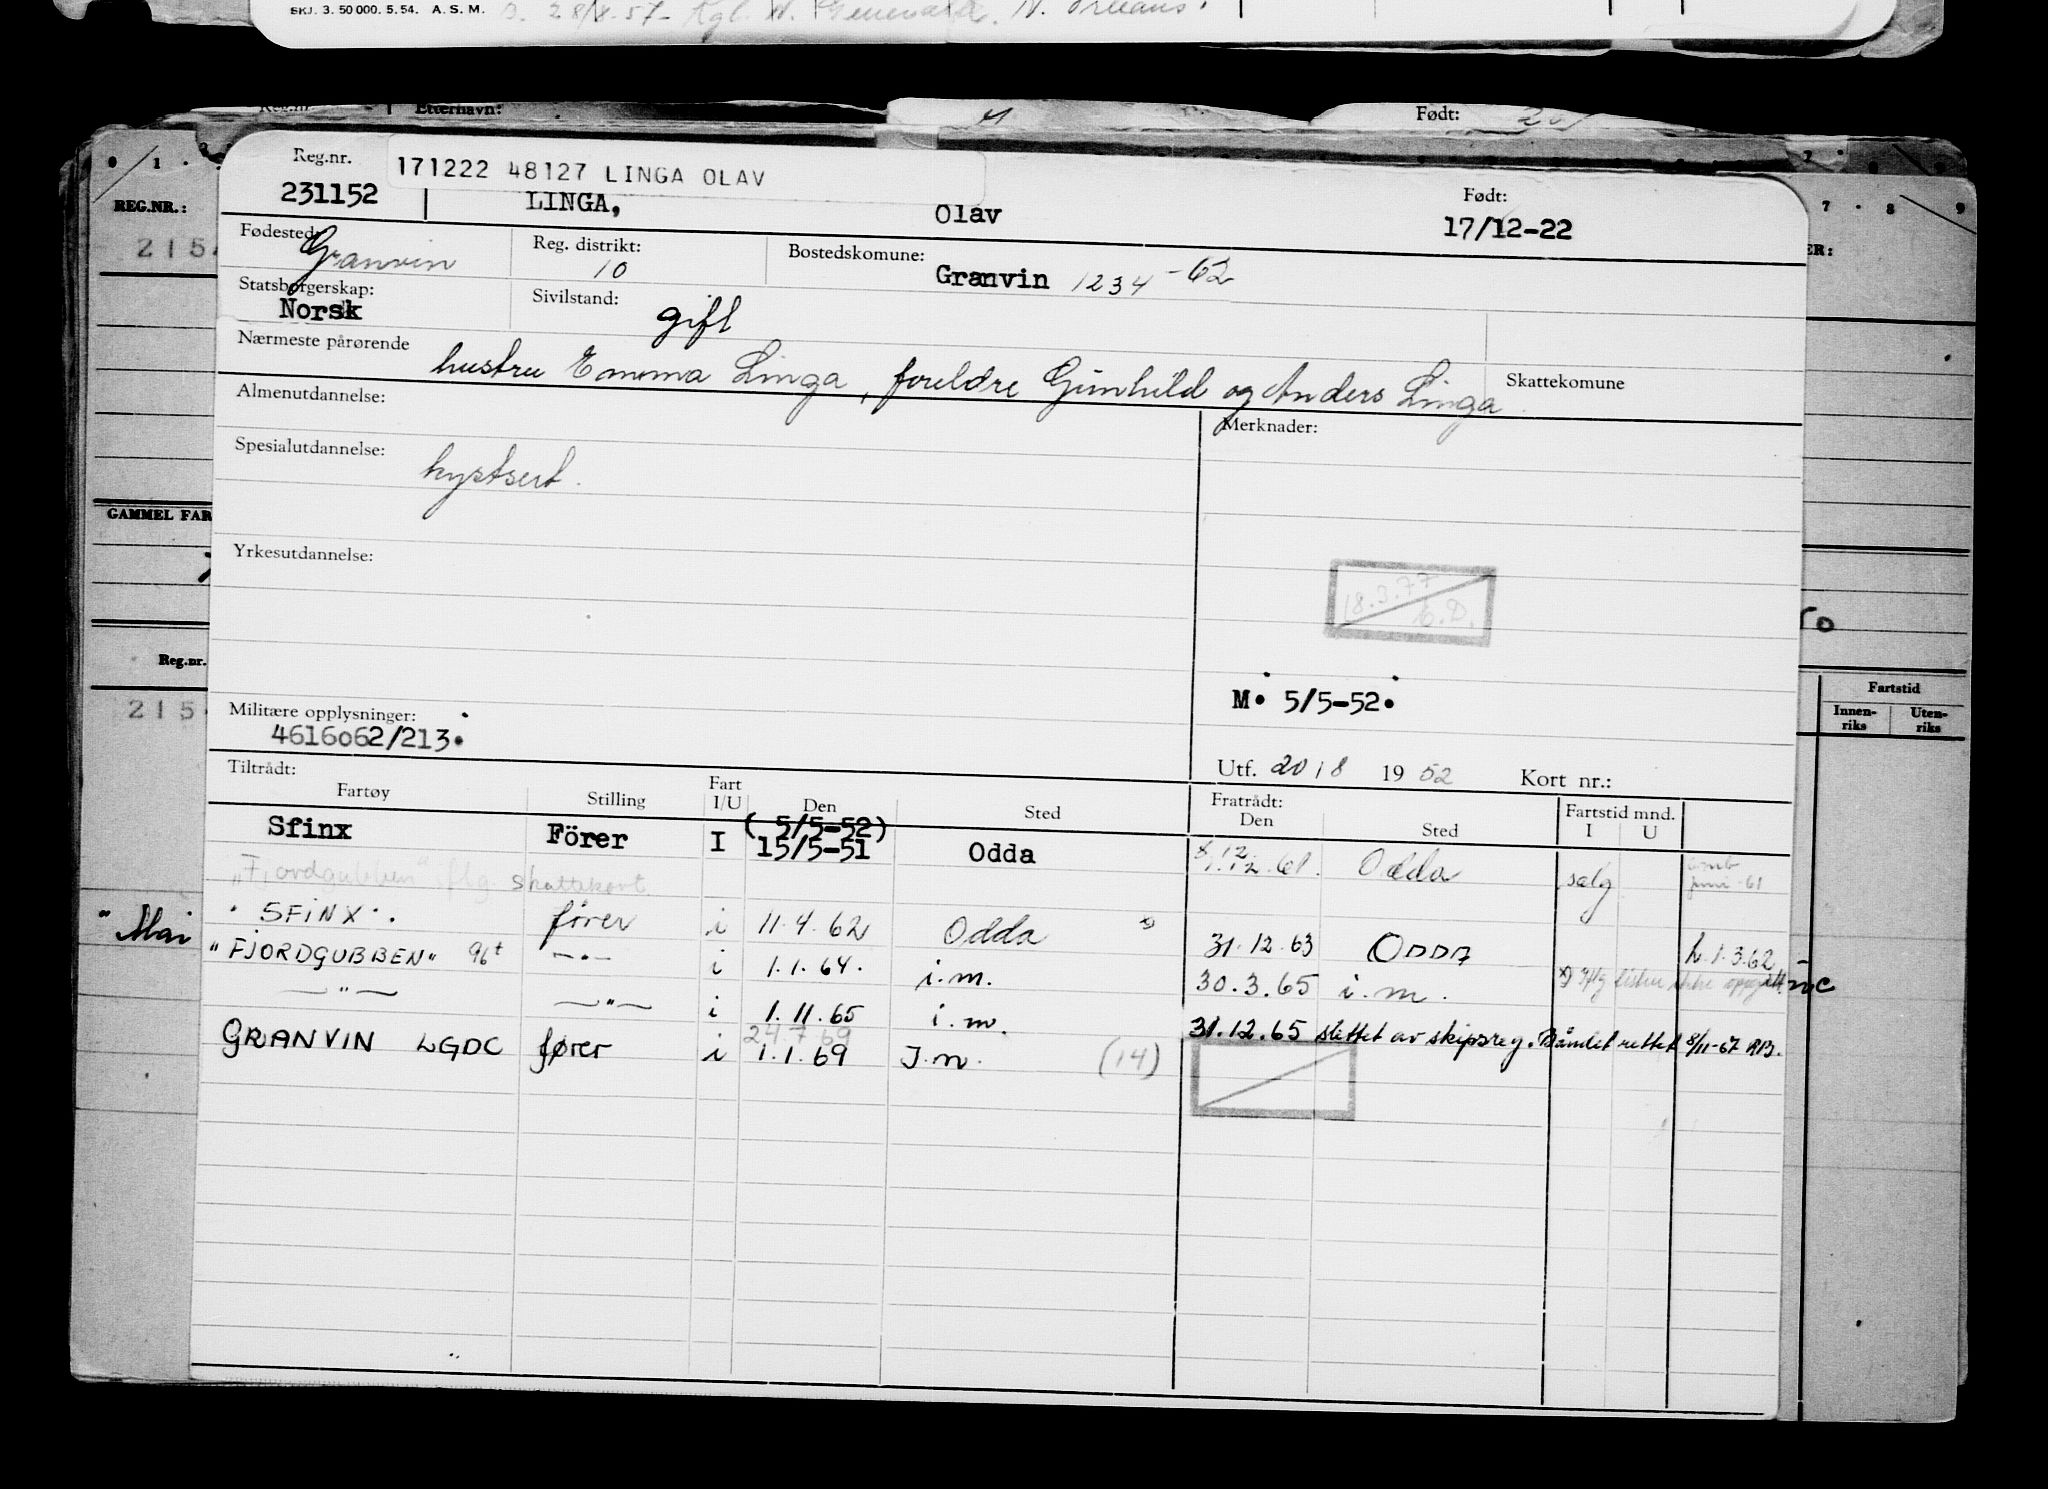 SKJ. 3. 50 000. 5. 54. A. S. M. 28/8-57- Kgl. N. N. Orleans.
Reg.nr. Etternavn: Født:
Reg.nr. 171222 48127 LINGA OLAV Født:
231152 LINGA, Olav 17/12-22
REG.NR.:
Fødested: Granvin Reg. distrikt: 10 Bostedskomune: Granvin 1234 -62
Statsborgerskap: Norsk Sivilstand: gift
Nærmeste pårørende hustru Emma Linga, foreldre Gunhild og Anders Linga Skattekomune
Almenutdannelse: Merknader:
Spesialutdannelse: kystsert.
GAMMEL FAR
Yrkesutdannelse:
18.3.77
Reg.nr. Fartstid
Innenriks Utenriks
M. 5/5-52.
Militære opplysninger:
4616062/213.
Utf. 20/8 1952 Kort nr.:
Tiltrådt: Fratrådt:
Fartøy Stilling Fart I/U Den Sted Den Sted Fartstid mnd. I U
Sfinx Förer I (5/5-52) 15/5-51 Odda 12.61. Odda salg juni-61
"Fjordgubben" iflg. skattekort
"SFINX". fører i 11.4.62 Odda x) 31.12.63 ODDA 1.3.62
"FJORDGUBBEN" 96t -"- i 1.1.64. i.m. 30.3.65 i.m.
-"- -"- i 1.11.65 i.m. 31.12.65 slettet av skipsreg. Båndet rettet 8/11-67 RB.
24.7.69
GRANVIN LGDC fører i 1.1.69 I.m. (14)